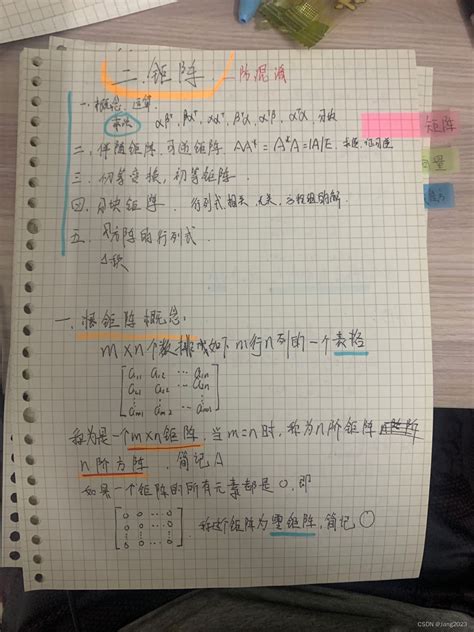 二.矩阵 —防混淆
一.概念、运算.
乘法 αβᵀ, βαᵀ, ααᵀ, βᵀα, αᵀβ, αᵀα
矩阵
二.伴随矩阵、可逆矩阵 AA* = A*A = |A|E.
三.初等变换、初等矩阵.
四.分块矩阵. 行列式,相关,无关,方程组的解.
五.方阵的行列式.
一.矩阵概念:
m×n个数排成如下m行n列的一个表格
a₁₁ a₁₂ ⋯ a₁ₙ
a₂₁ a₂₂ ⋯ a₂ₙ
⋮ ⋮ ⋮
aₘ₁ aₘ₂ ⋯ aₘₙ
称为是一个m×n矩阵,当m=n时,称为n阶矩阵
n阶方阵, 简记A
如果一个矩阵的所有元素都是0,即
0 0 ⋯ 0
0 0 ⋯ 0
⋮ ⋮ ⋮
0 0 ⋯ 0
称这个矩阵为零矩阵,简记O
CSDN @Jang2023